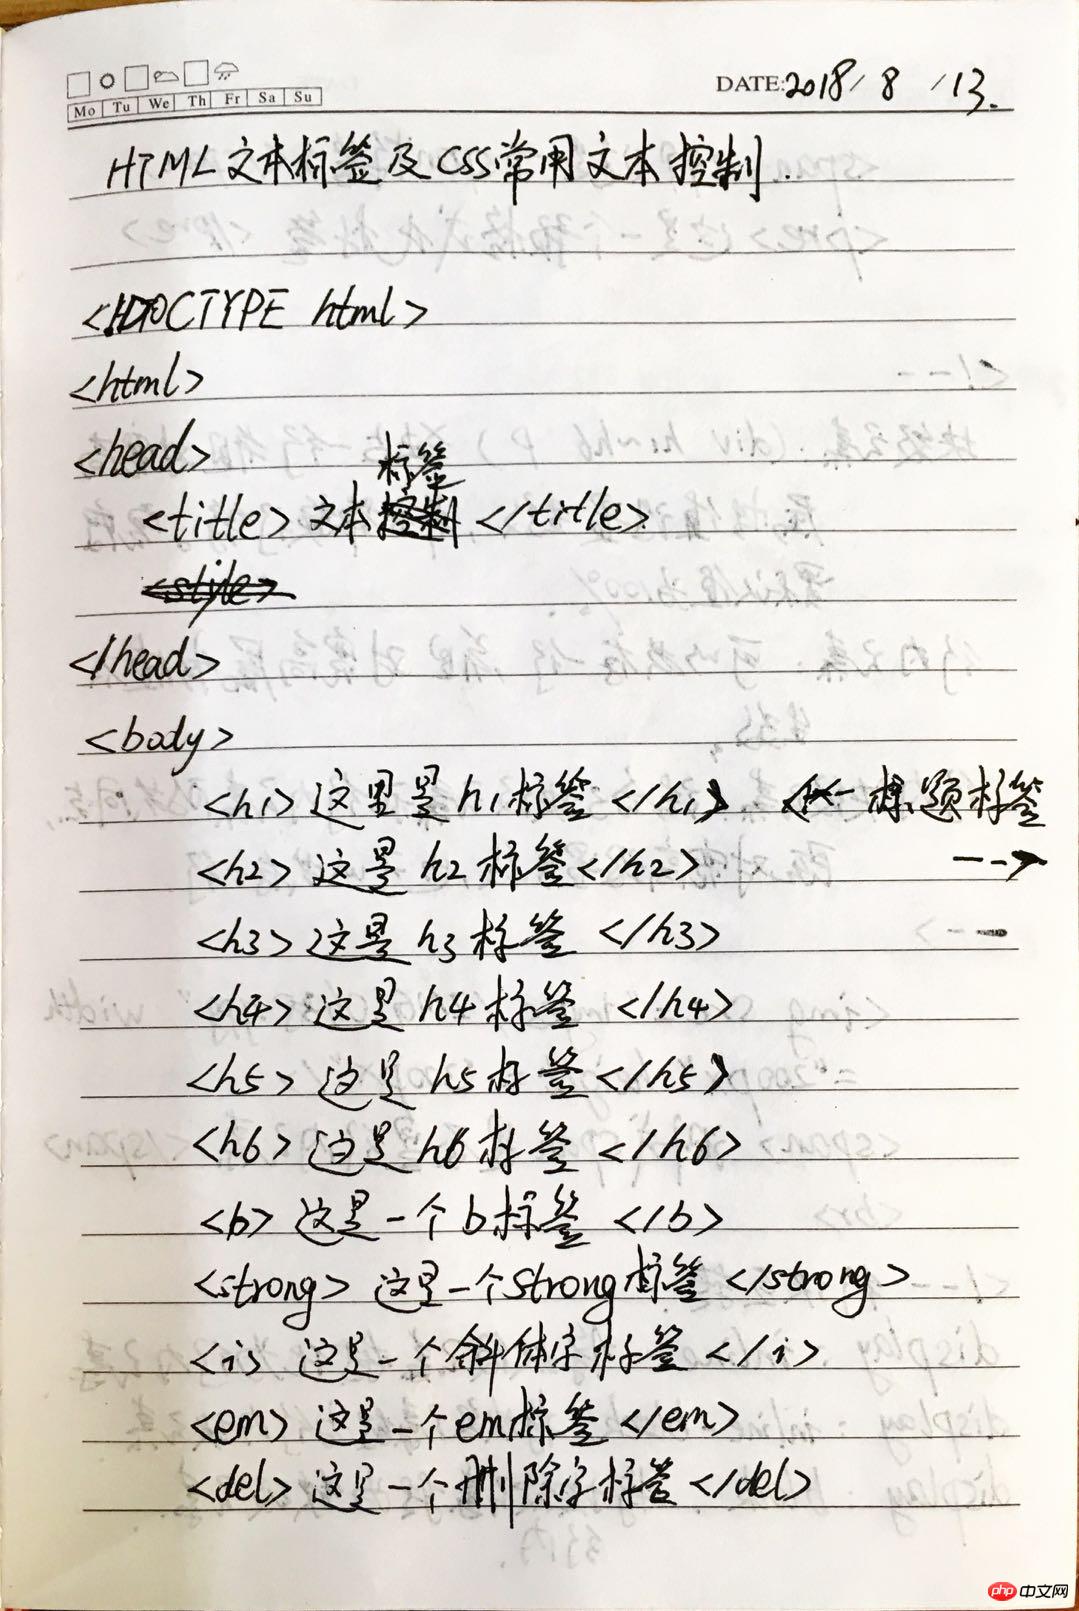 Mo Tu We Th Fr Sa Su
DATE: 2018/8/13.
HTML文本标签及CSS常用文本控制.
<!DOCTYPE html>
<html>
<head>
标签
<title>文本控制</title>
<style>
</head>
<body>
<h1>这里是h1标签</h1> <!-- 标题标签
<h2>这是h2标签</h2> -->
<h3>这是h3标签</h3>
<h4>这是h4标签</h4>
<h5>这是h5标签</h5>
<h6>这是h6标签</h6>
<b>这是一个b标签</b>
<strong>这是一个strong标签</strong>
<i>这是一个斜体字标签</i>
<em>这是一个em标签</em>
<del>这是一个删除字标签</del>
php中文网